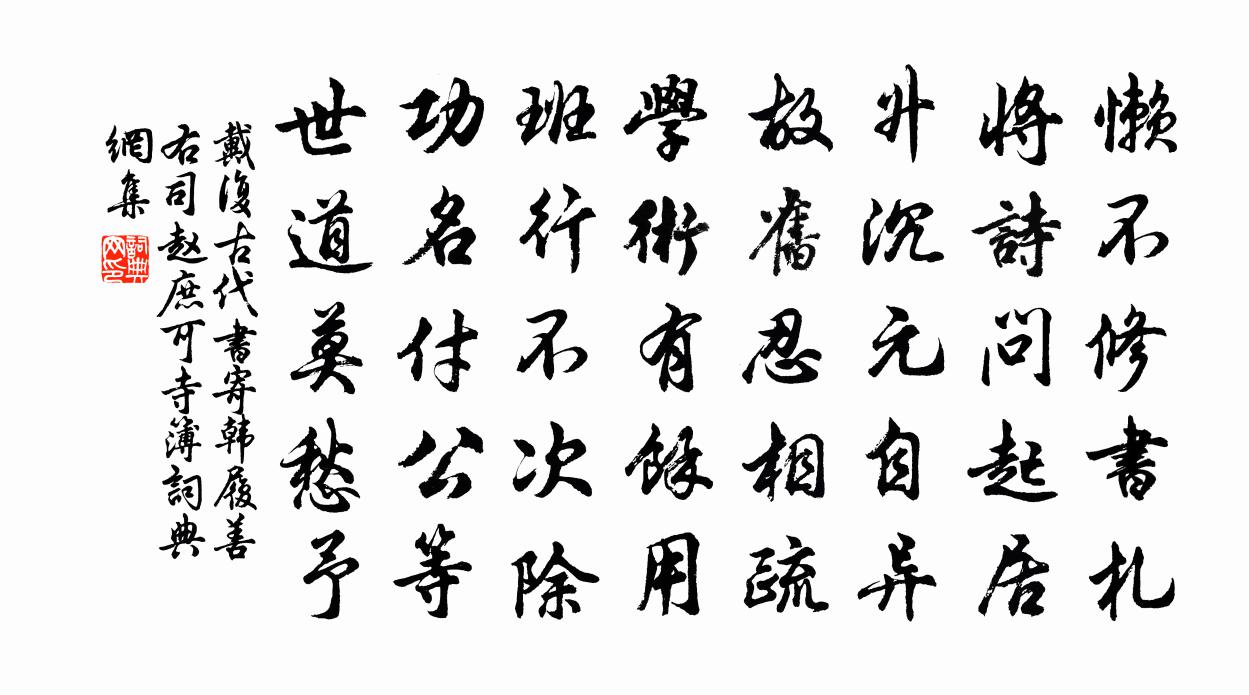 懶不修書札
將詩問起居
升沉元自异
故舊忍相疏
學術有餘用
班行不次除
功名付公等
世道莫愁予
戴復古代書寄韩履善
右司赵庶可寺簿詞典
網集
詞典网印